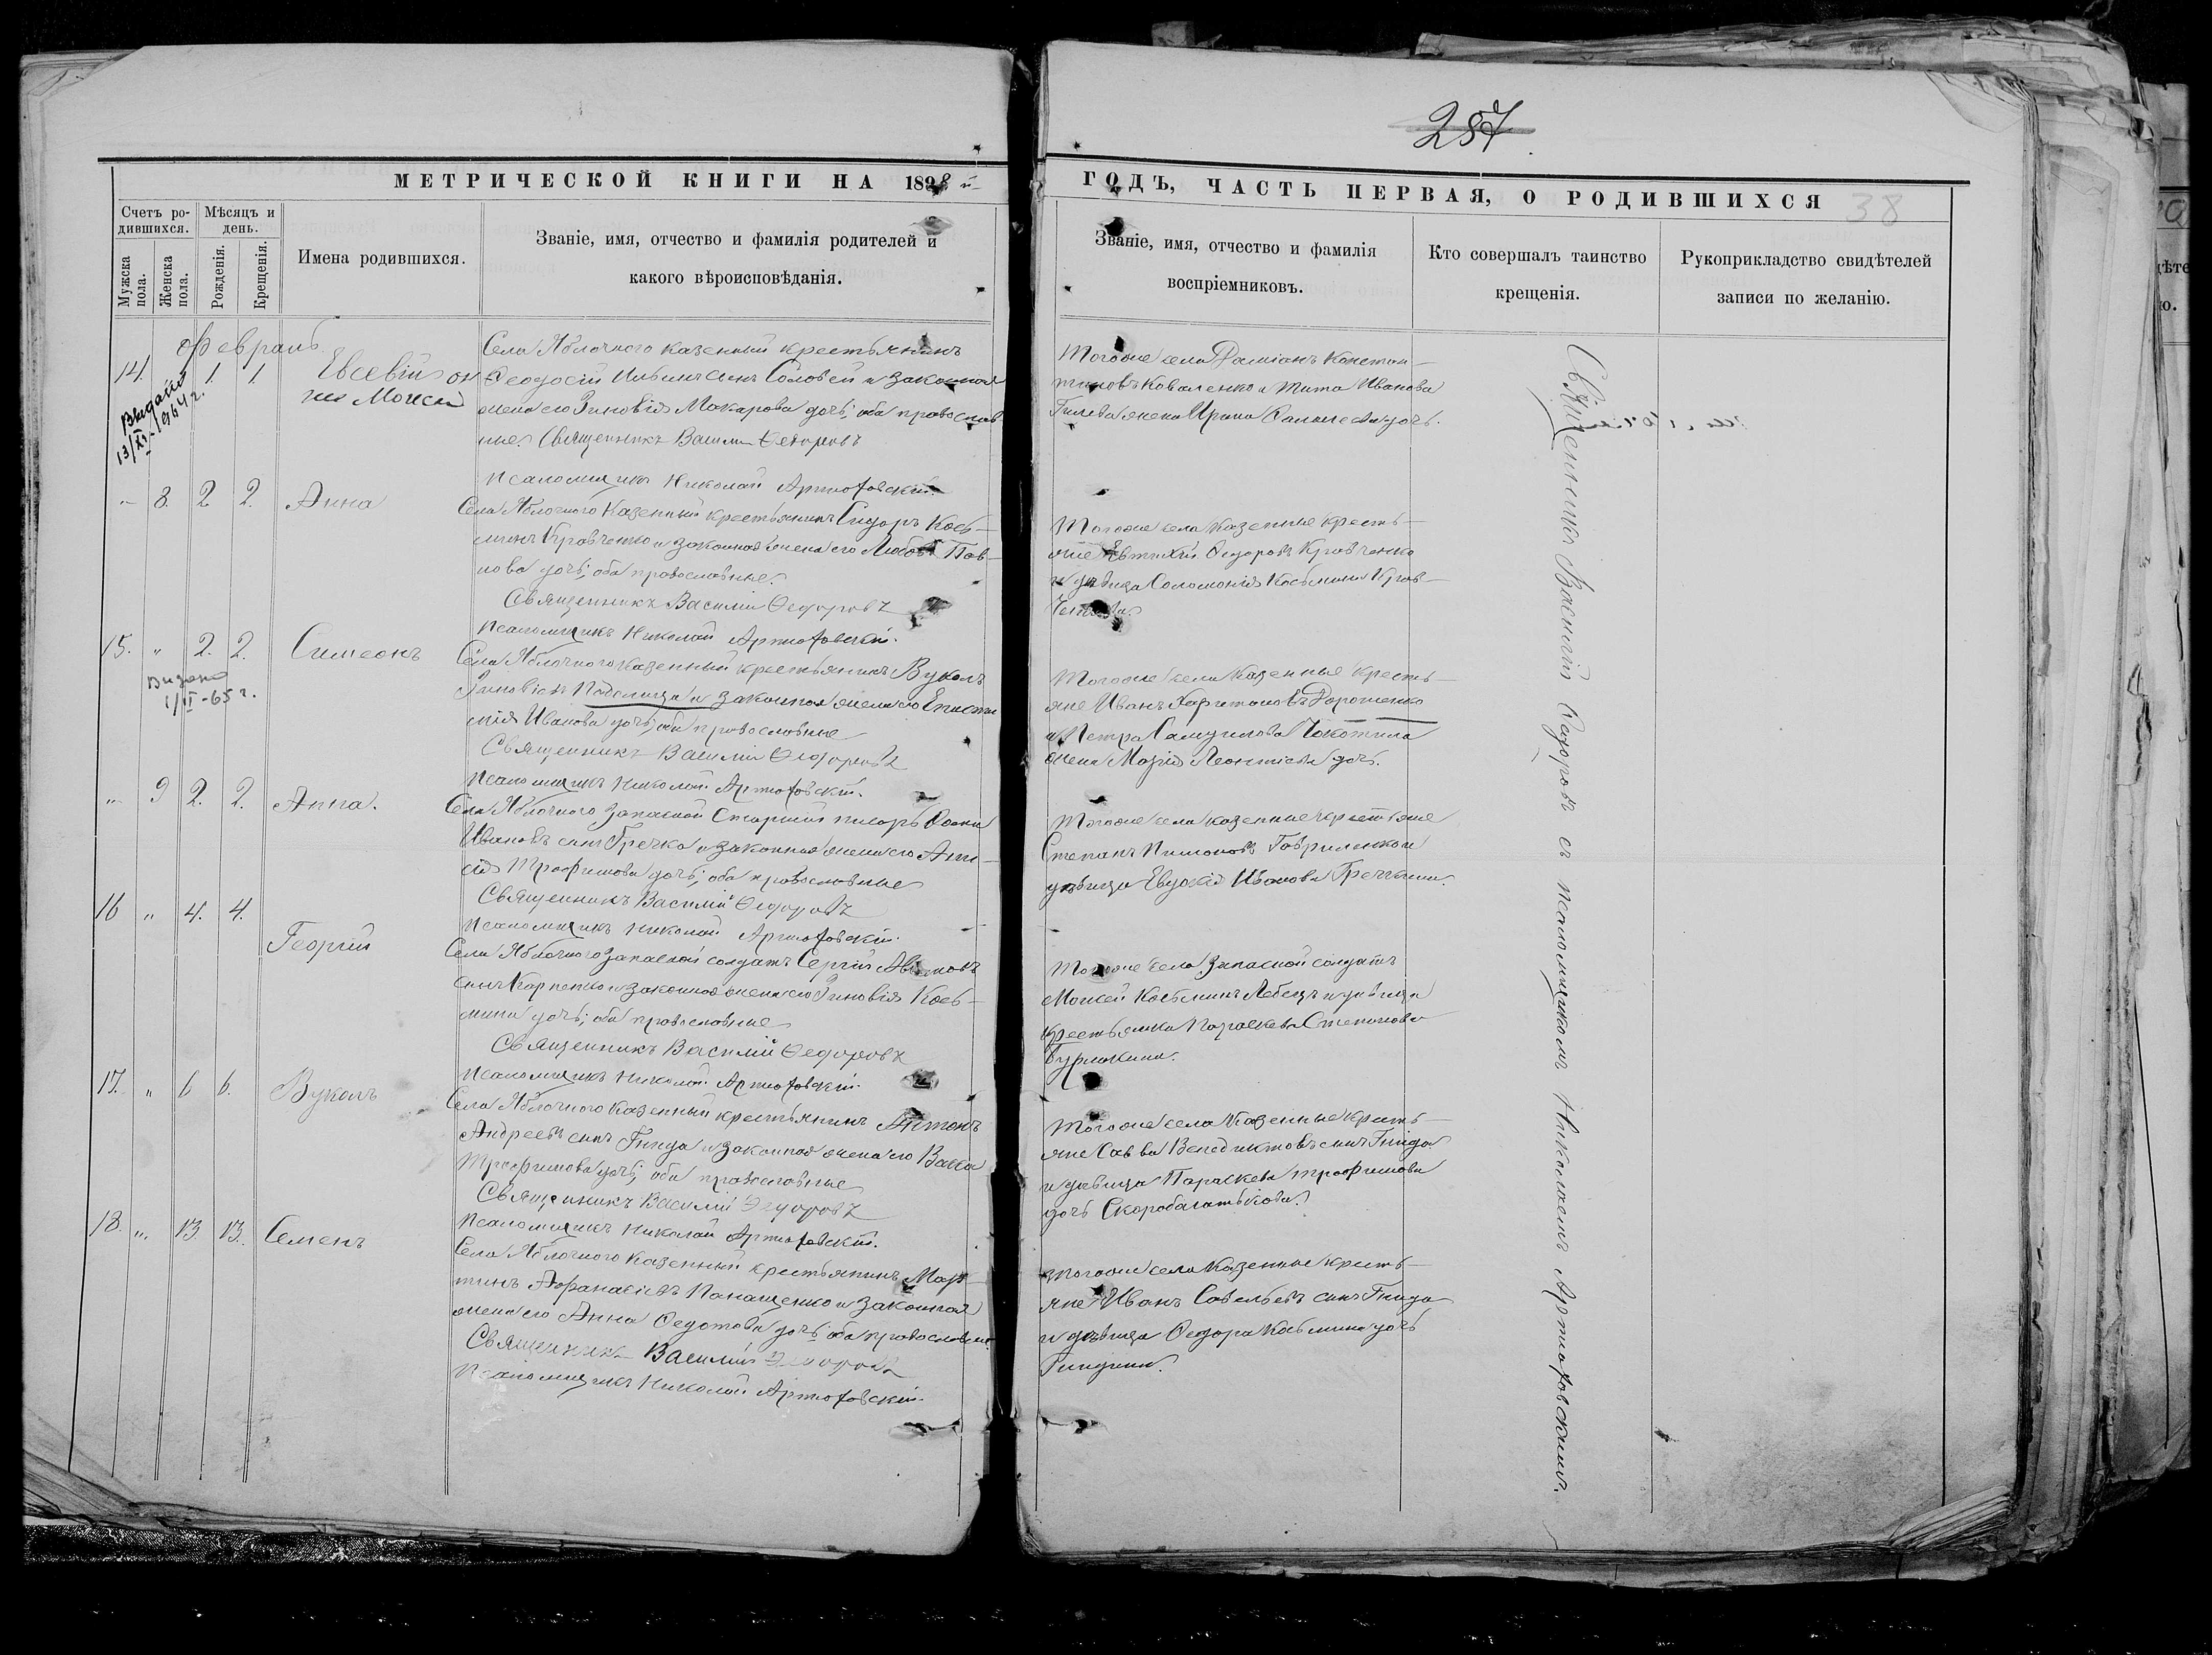 287
38
МЕТРИЧЕСКОЙ КНИГИ НА 1898 й
ГОДЪ, ЧАСТЬ ПЕРВАЯ, О РОДИВШИХСЯ
Счетъ ро-
дившихся.
Мѣсяцъ и
день.
Мужска
пола.
Женска
пола.
Рожденія.
Крещенія.
Имена родившихся.
Званіе, имя, отчество и фамилія родителей и
какого вѣроисповѣданія.
Званіе, имя, отчество и фамилія
воспріемниковъ.
Кто совершалъ таинство
крещенія.
Рукоприкладство свидѣтелей
записи по желанію.
Февраль
14. 1. 1. Евсевій он
же Моисей
Выдано
13/XI-1964 г.
Села Яблочного казенный крестьянинъ
Ѳеодосій Ильинъ сынъ Соловей и законная
жена его Зиновія Макарова дочь; оба православ
ные. Священникъ Василій Ѳедоровъ
Псаломщикъ Николай Артюховскій.
Тогоже села Даміанъ Констан-
тиновъ Коваленко и Тита Иванова
жена Ирина дочь.
" 8. 2 2. Анна
Села Яблочного Казенный крестьянинъ Сидоръ Козь-
минъ Кравченко и законная жена его Любовь Пав-
лова дочь; оба православные.
Священникъ Василій Ѳедоровъ
Псаломщикъ Николай Артюховскій.
Тогоже села Казенные кресть-
яне Евтихій Ѳедоровъ Кравченко
и дѣвица Соломонія Козьмина Крав-
15. " 2. 2. Симеонъ
Видано
1/II-65 г.
Села Яблочного казенный крестьянинъ Вуколъ
Зиновіевъ и законная жена его Еписти
мія Иванова дочь; оба православные
Священникъ Василій Ѳедоровъ
Псаломщикъ Николай Артюховскій.
Тогоже села Казенные кресть-
яне Иванъ Харитоновъ Дорошенко
и Петра Самуилова
жена Марія Леонтіева дочь.
" 9 2. 2. Анна.
Села Яблочного Запасной Старшій писарь Ѳома
Ивановъ сынъ Гречка и законная жена его Ани-
сія Трофимова дочь; оба православные
Священникъ Василій Ѳедоровъ
Псаломщикъ Николай Артюховскій.
Тогоже села казенные крестьяне
Степанъ Пимоновъ Гавриленко и
дѣвица Евдокія Иванова Гречкина.
16 " 4. 4.
Георгій
Села Яблочного Запасной солдатъ Сергій
сынъ Карпенко и законная жена его Зиновія Козь-
мина дочь; оба православные
Священникъ Василій Ѳедоровъ
Псаломщикъ Николай Артюховскій.
Тогоже села Запасной солдатъ
Моисей Козьминъ Лебедь и дѣвица
крестьянка Параскева Степанова
17. " 6 6. Вуколъ
Села Яблочного Казенный крестьянинъ Антонъ
Андреевъ сынъ Гнида и законная жена его Васса
Трофимова дочь; оба православные
Священникъ Василій Ѳедоровъ
Псаломщикъ Николай Артюховскій.
Тогоже села Казенные кресть-
яне Савва Венедиктовъ сынъ Гнида
и дѣвица Параскева Трофимова
дочь Скоробагатькова.
18. " 13 13. Семенъ
Села Яблочного Казенный крестьянинъ Мар-
тинъ Аѳанасіевъ Панащенко и законная
жена его Анна Ѳедотова дочь; оба православные.
Священникъ Василій Ѳедоровъ
Псаломщикъ Николай Артюховскій.
Тогоже села Казенные кресть-
яне Иванъ Савельевъ сынъ Гнида
и дѣвица Ѳедора Козьмина дочь
Священникъ Василій Ѳедоровъ съ псаломщикомъ Николаемъ Артюховскимъ.